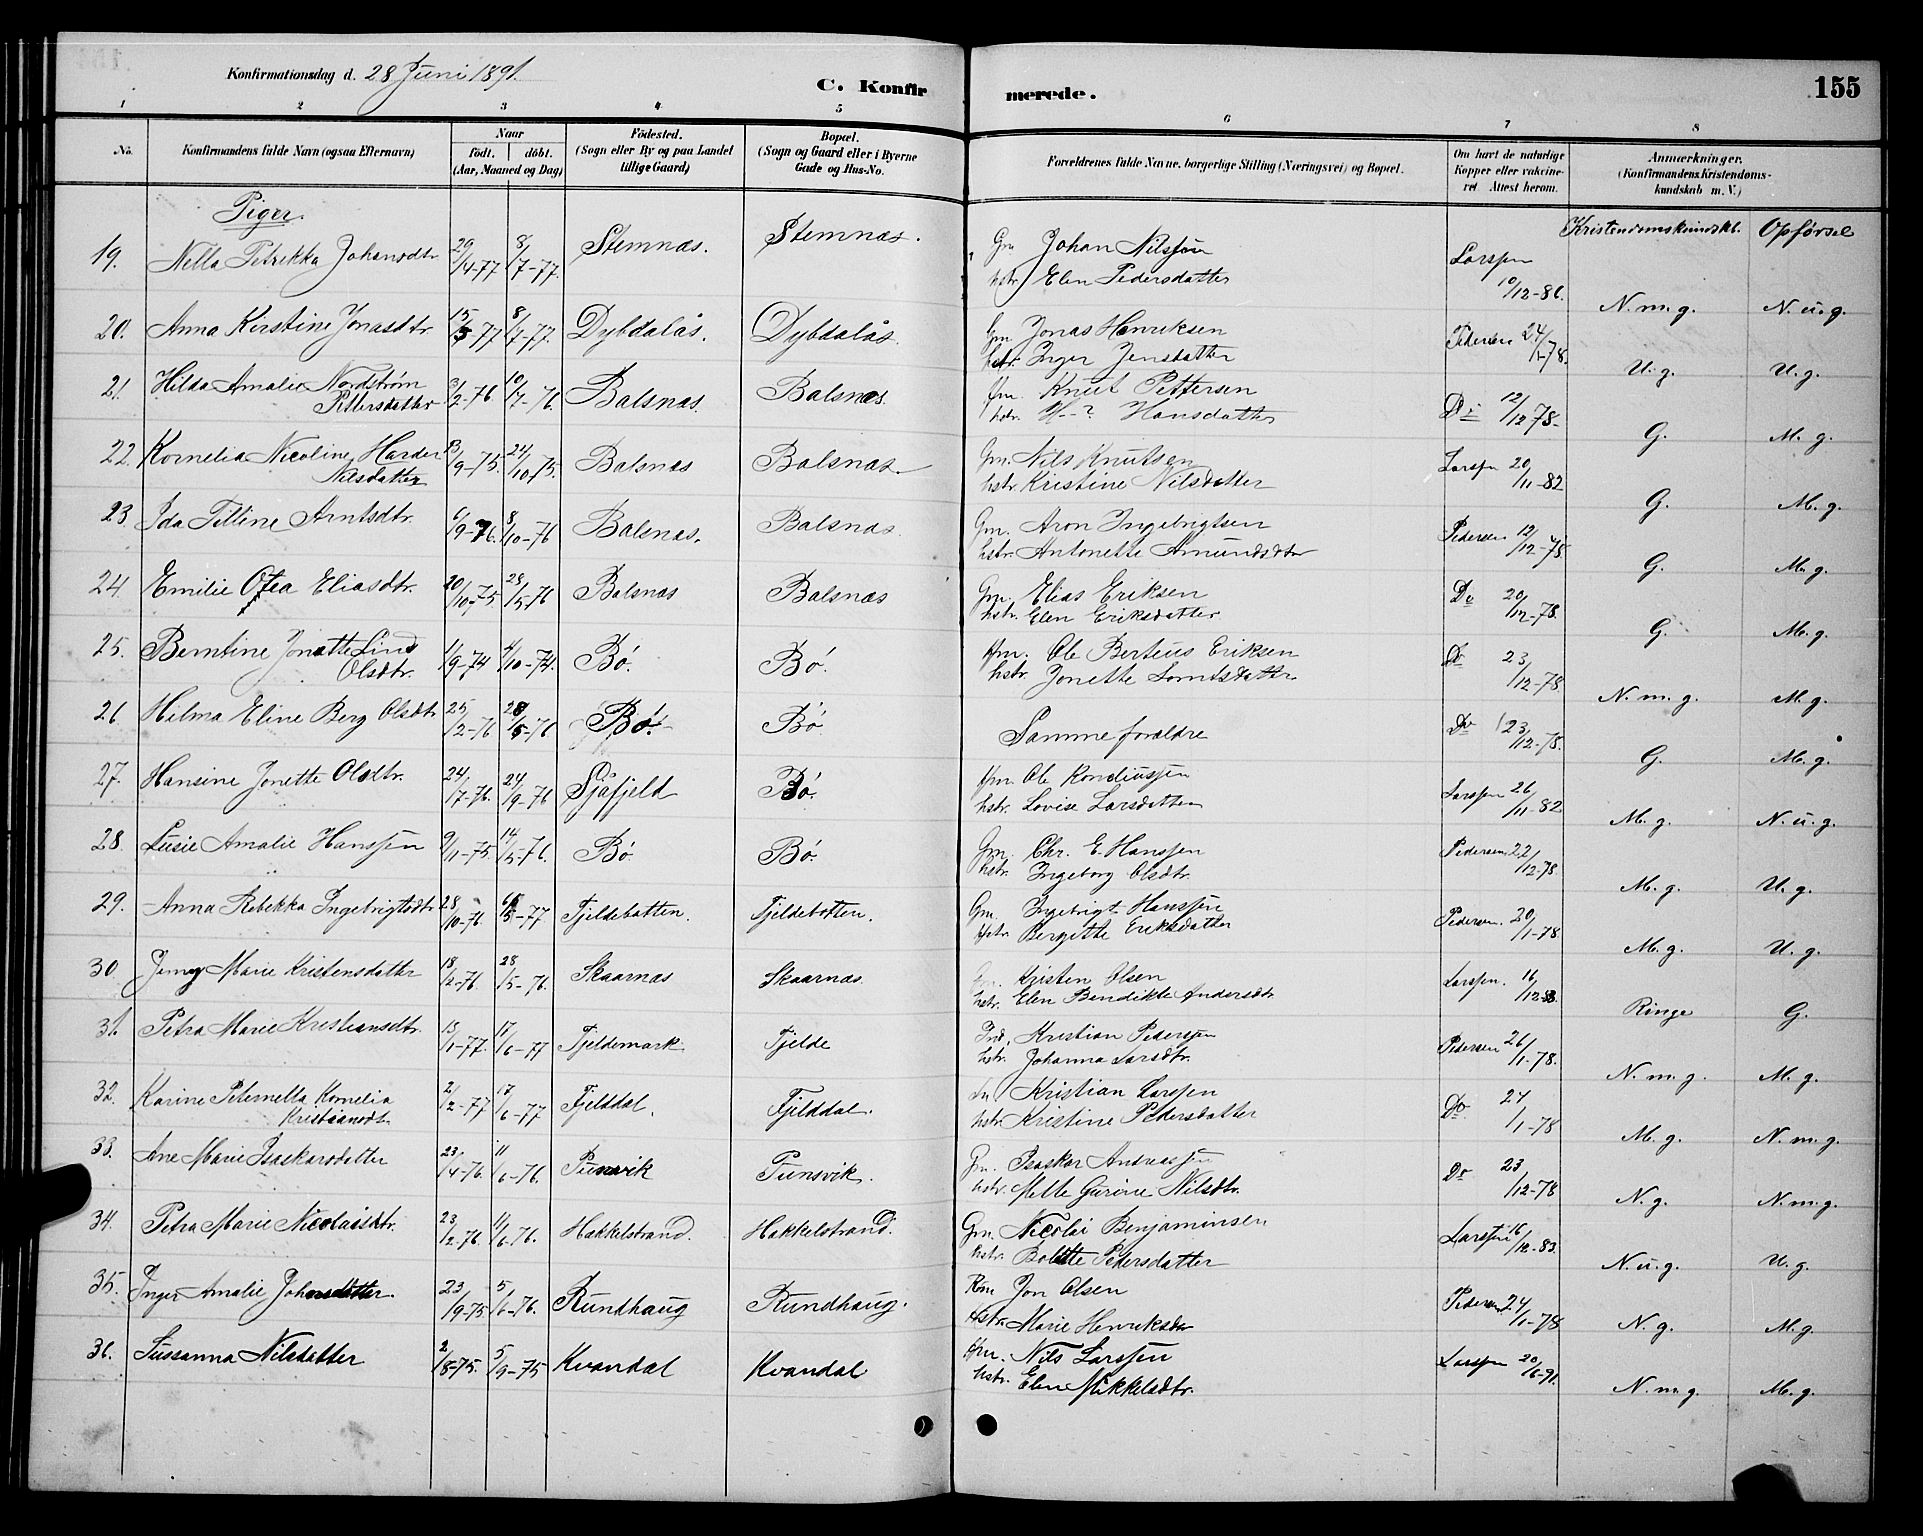 Konfirmationsdag d. 28 Juni 1891.
C. Konfir
merede.
155
1 2 3 4 5 6 7 8
No. Konfirmandens fulde Navn (ogsaa Efternavn) Naar födt. döbt. (Aar, Maaned og Dag) Födested. (Sogn eller By og paa Landet tillige Gaard) Bopæl. (Sogn og Gaard eller i Byerne Gade og Hus-No. Forældrenes fulde Navne, borgerlige Stilling (Næringsvei) og Bopæl. Om havt de naturlige Kopper eller vakcineret. Attest herom. Anmærkninger. (Konfirmandens Kristendomskundskab m. V.)
Piger.
Kristendomskundskb. Opførsel
19. Nella Petrekka Johansdtr 29/4-77 8/7-77. Stemnæs. Stemnæs. Gm Johan Nilssen
hstr Elen Pedersdatter Larssen 10/12-86. N.m.g. N.u.g.
20. Anna Kirstine Jonasdtr 15/5-77 8/7-77. Dybdalås. Dybdalås. Gm Jonas Henriksen
hstr. Inger Jensdatter Pedersen 24/1-78. U.g. U.g.
21. Hilda Amalie Nordstrøm
Pettersdatter 3/2-76 10/7-76. Balsnæs. Balsnæs. Hm. Knut Pettersen
hstr. H--? Hansdatter Do 12/12 78- G. M.g.
22. Kornelia Nicoline Harder
Nilsdatter 23/9-75. 24/10-75. Balsnæs Balsnæs. Gm. Nils Knutsen
hstr. Kristine Nilsdatter Larssen 20/11-82 G. M.g.
23 Ida Tilline Arntsdtr. 6/9-76. 8/10-76 Balsnæs. Balsnæs. Gm. Aron Ingebrigtsen
hstr. Antonette Amundsdtr Pedersen 12/12-78 G. M.g.
24. Emilie Otea Eliasdtr. 20/10-75 28/5-76 Balsnæs Balsnæs Gm. Elias Eriksen
hstr. Elen Eriksdatter. Do 20/12-78. G. M.g.
25. Berntine Jonette Lind
Olsdtr. 11/9-74 4/10-74. Bø. Bø. Hm. Ole Berteus Eriksen
hstr. Jonette Lorntsdatter Do 23/12-78. N.m.g. M.g.
26. Hilma Eline Berg Olsdtr 25/2-76 28/5-76 Bø. Bø. Samme forældre Do 23/12-78. G. M.g.
27. Hansine Jonette Olsdtr. 24/7-76. 24/9-76 Sjåfjeld Bø. Hm. Ole Kondiussen
hstr. Lovise Larsdatter Larssen 26/11-82 M.g. N.u.g.
28. Lusie Amalie Hanssen 9/11-75. 14/5-76. Bø. Bø. Gm. Chr. E. Hanssen
hstr. Ingeborg Olsdtr. Pedersen 22/12-78 M.g. U.g.
29. Anna Rebekka Ingebrigtsdtr 28/10-76 -77 Fjeldebotten. Fjeldebotten. Gm. Ingebrigt Hanssen
Hstr. Bergitte Eriksdatter Pedersen. 20/1-78. M.g. U.g.
30. Jenny Marie Kristensdatter 18/2-76. 28/5-76. Skaarnæs Skaarnæs. Kristen Olsen
hstr. Elen Bendikte Andersdtr. Larssen. 16/12-83. Ringe G.
31. Petra Marie Kristiansdtr. 13/1-77. 17/6-77 Fjeldemark Fjelde Ind. Kristian Pederssen
hstr. Johanna Larsdtr. Pedersen 26/1-78. N.m.g. M.g.
32. Karine Peternella Kornelia
Kristiansdtr 2/2-77 17/6-77 Fjelddal. Fjelddal. Kristian Larssen
hstr. Kristine Pedersdatter Do 24/1-78 M.g. N.m.g.
33. Ane Marie Isaskarsdatter 23/4-76. 11/6-76. Tunsvik Tunsvik. Gm. Isaskar Andreassen
hstr. Mette Gurine Nilsdtr. Do 23/12-78 N.g. N.m.g.
34. Petra Marie Nicolaisdtr. 23/2-76. 11/6-76. Hækkelstrand. Hækkelstrand. Gm. Nicolai Benjaminsen
hstr. Bolette Pedersdatter Larssen 16/12-83. N.u.g. U.g.
35. Inger Amalie Johnsdatter. 23/9-75 5/6-76. Rundhaug Rundhaug. Hm Jon Olsen
Hstr. Marie Henriksdtr Pedersen 24/1-78 N.g. M.g.
36. Sussanna Nilsdatter 2/8-75. 5/9-75 Kvandal Kvandal Hm. Nils Larssen
hstr. Elen Mikkelsdtr. Larssen 20/6-91. N.m.g. M.g.